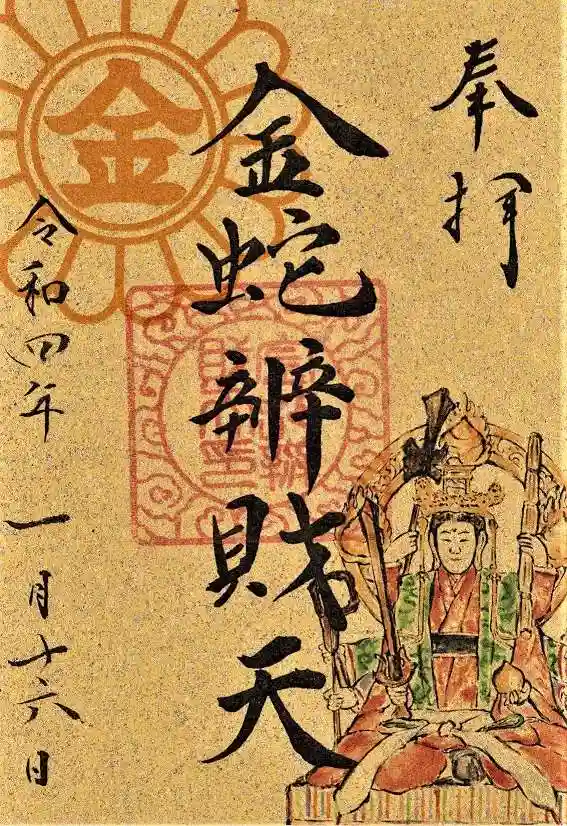 奉拝
金
金蛇辨財天
令和四年
一月十六日